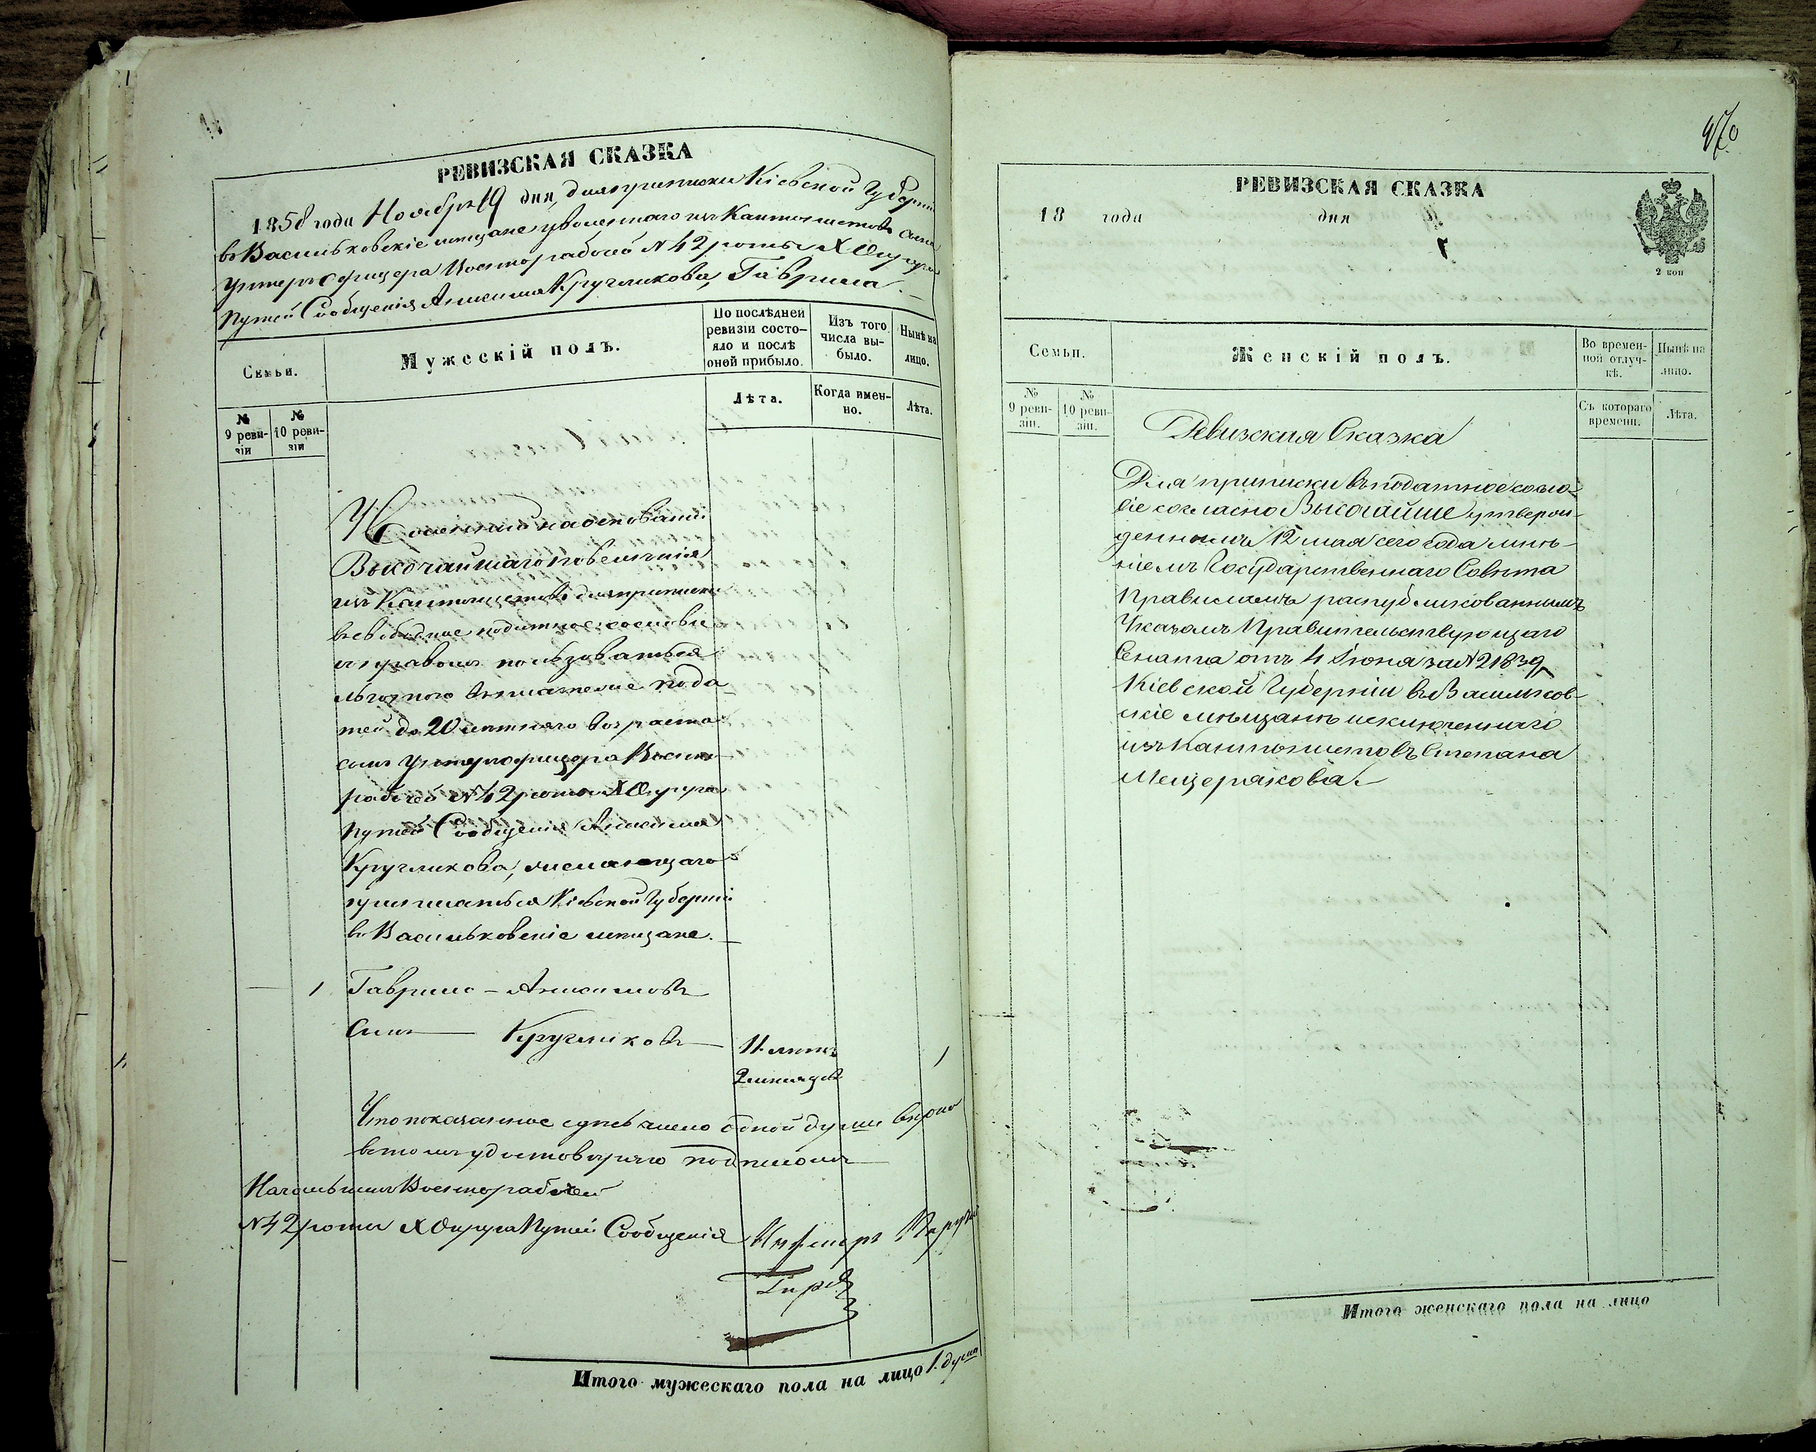 РЕВИЗСКАЯ СКАЗКА
1858 года Ноября 19 дня, для приписки Кіевской Губерніи
въ Васильковскіе мѣщане уволеннаго изъ Кантонистовъ сына
унтеръ офицера Военнорабочей №42 роты X Округа
Путей Сообщенія Анисима Кругликова, Гаврила.
Семьи.
Мужескій полъ.
По послѣдней ревизіи состо-
яло и послѣ
оней прибыло.
Изъ того
числа вы-
было.
Нынѣ на
лицо.
№
9 реви-
зіи
№
10 реви-
зіи
Лѣта.
Когда имен-
но.
Лѣта.
Уволенный на основаніи
Высочайшаго повеленія
изъ Кантонистовъ для приписки
въ свободное податное сословіе
съ правомъ пользоваться
льготою въ платеже пода
тей до 20 летняго возраста
сынъ унтеръ офицера Военно
рабочей №42 роты X Округа
Путей Сообщенія Анисима
Кругликова, желающаго
приписаться Кіевской Губерніи
въ Васильковскіе мещане.
1 Гаврило - Анисимовъ
Сынъ Кругликовъ 11 летъ
2 месяца 1
Что показанное здесь число одной души верно
въ томъ удостоверяю подписомъ
Начальникъ Военнорабочей
№42 роты X Округа Путей Сообщенія Инженеръ
Итого мужескаго пола на лицо 1. душа
470
РЕВИЗСКАЯ СКАЗКА
18 года дня
2 коп
Семьи.
Женскій полъ.
Во времен-
ной отлуч-
кѣ.
Нынѣ на
лицо.
№
9 реви-
зіи.
№
10 реви-
зіи.
Съ котораго
времени.
Лѣта.
Ревизская Сказка
Для приписки въ податное сосло-
віе согласно Высочайше утверж-
деннымъ 12 мая сего года мнѣ-
ніемъ Государственнаго Совѣта
Правиламъ распубликованнымъ
Указомъ Правительствующаго
Сената отъ 4 Іюня за №21839
Кіевской Губерніи въ Васильков-
скіе мѣщане исключеннаго
изъ Кантонистовъ Степана
Мещерякова.
Итого женскаго пола на лицо